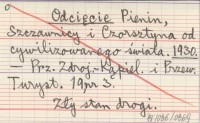 Odcięcie Pienin,
Szczawnicy i Czorsztyna od
cywilizowanego świata. 1930.
— Prz. Zdroj.-Kąpiel. i Przew.
Turyst. 19 nr 3.
Zły stan drogi.